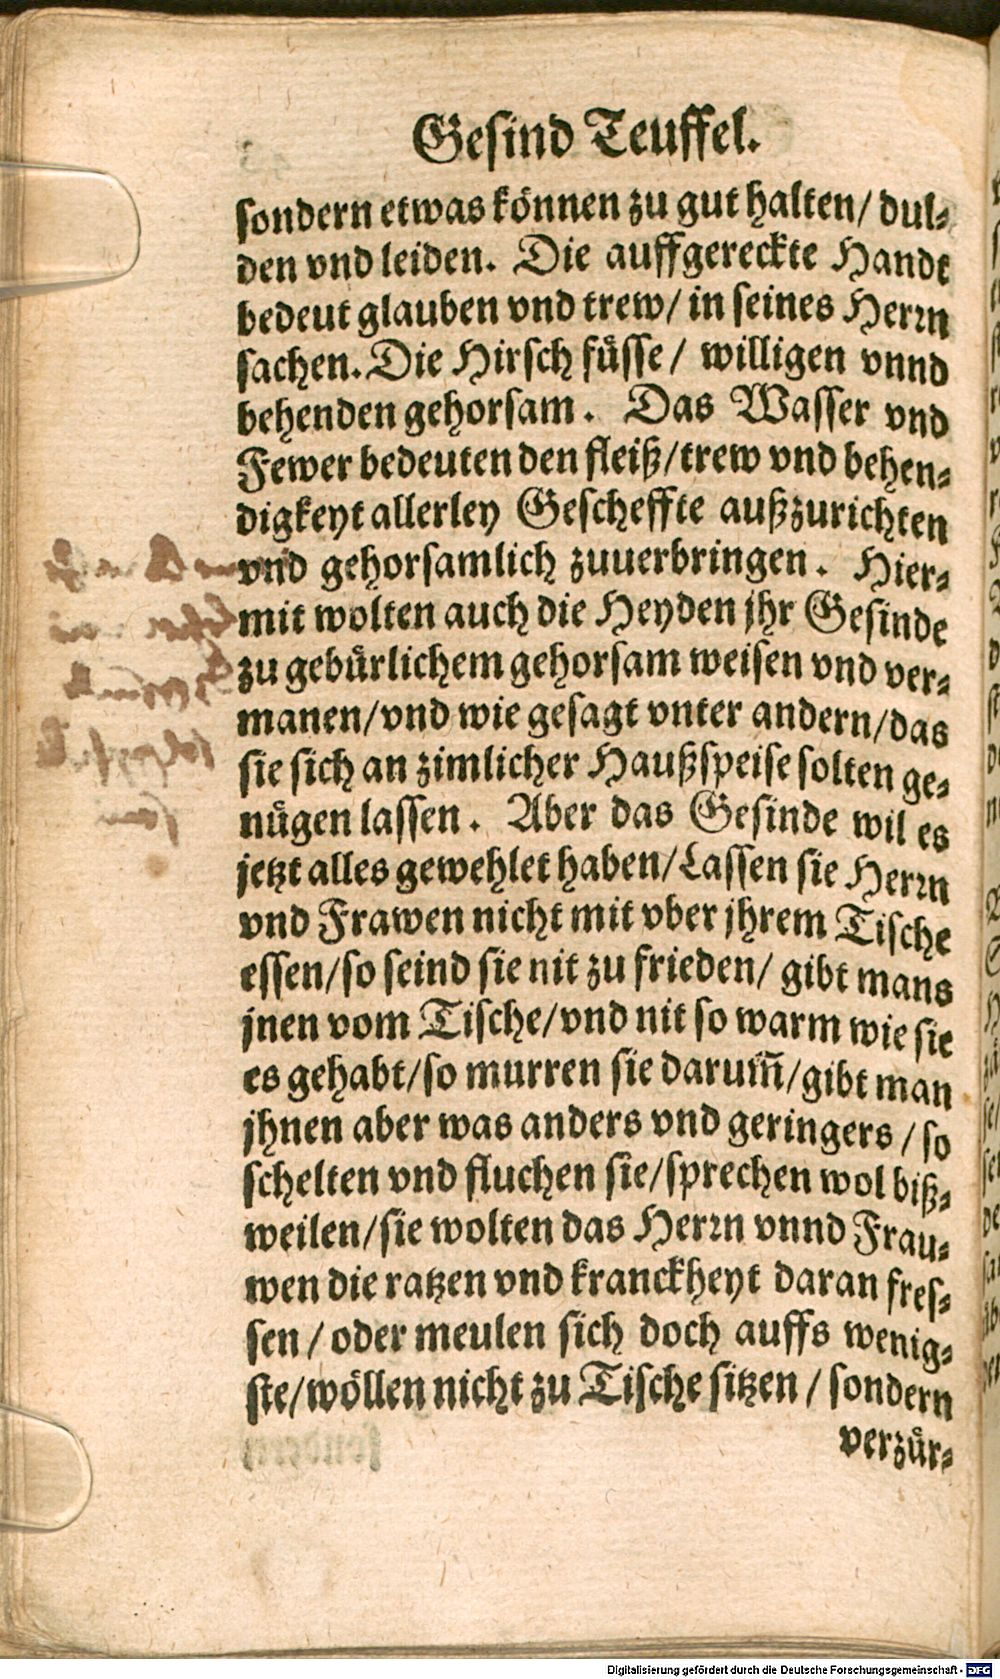 Gesind Teuffel.
sondern etwas können zu gut halten/ dul⸗
den vnd leiden. Die auffgereckte Handt
bedeut glauben vnd trew/ in seines Herrn
sachen. Die Hirsch füsse/ willigen vnnd
behenden gehorsam. Das Wasser vnd
Fewer bedeuten den fleiß/trew vnd behen⸗
digkeyt allerley Gescheffte außzurichten
vnd gehorsamlich zuuerbringen. Hier⸗
mit wolten auch die Heyden jhr Gesinde
zu gebürlichem gehorsam weisen vnd ver⸗
manen/vnd wie gesagt vnter andern/das
sie sich an zimlicher Haußspeise solten ge⸗
nügen lassen. Aber das Gesinde wil es
jetzt alles gewehlet haben/Lassen sie Herrn
vnd Frawen nicht mit vber jhrem Tische
essen/so seind sie nit zu frieden/ gibt mans
jnen vom Tische/vnd nit so warm wie sie
es gehabt/so murren sie darum̃/gibt man
jhnen aber was anders vnd geringers /so
schelten vnd fluchen sie/sprechen wol biß⸗
weilen/sie wolten das Herrn vnnd Frau⸗
wen die ratzen vnd kranckheyt daran fres⸗
sen / oder meulen sich doch auffs wenig⸗
ste/wöllen nicht zu Tische sitzen / sondern
verzür⸗
Digitalisierung gefördert durch die Deutsche Forschungsgemeinschaft - DFG